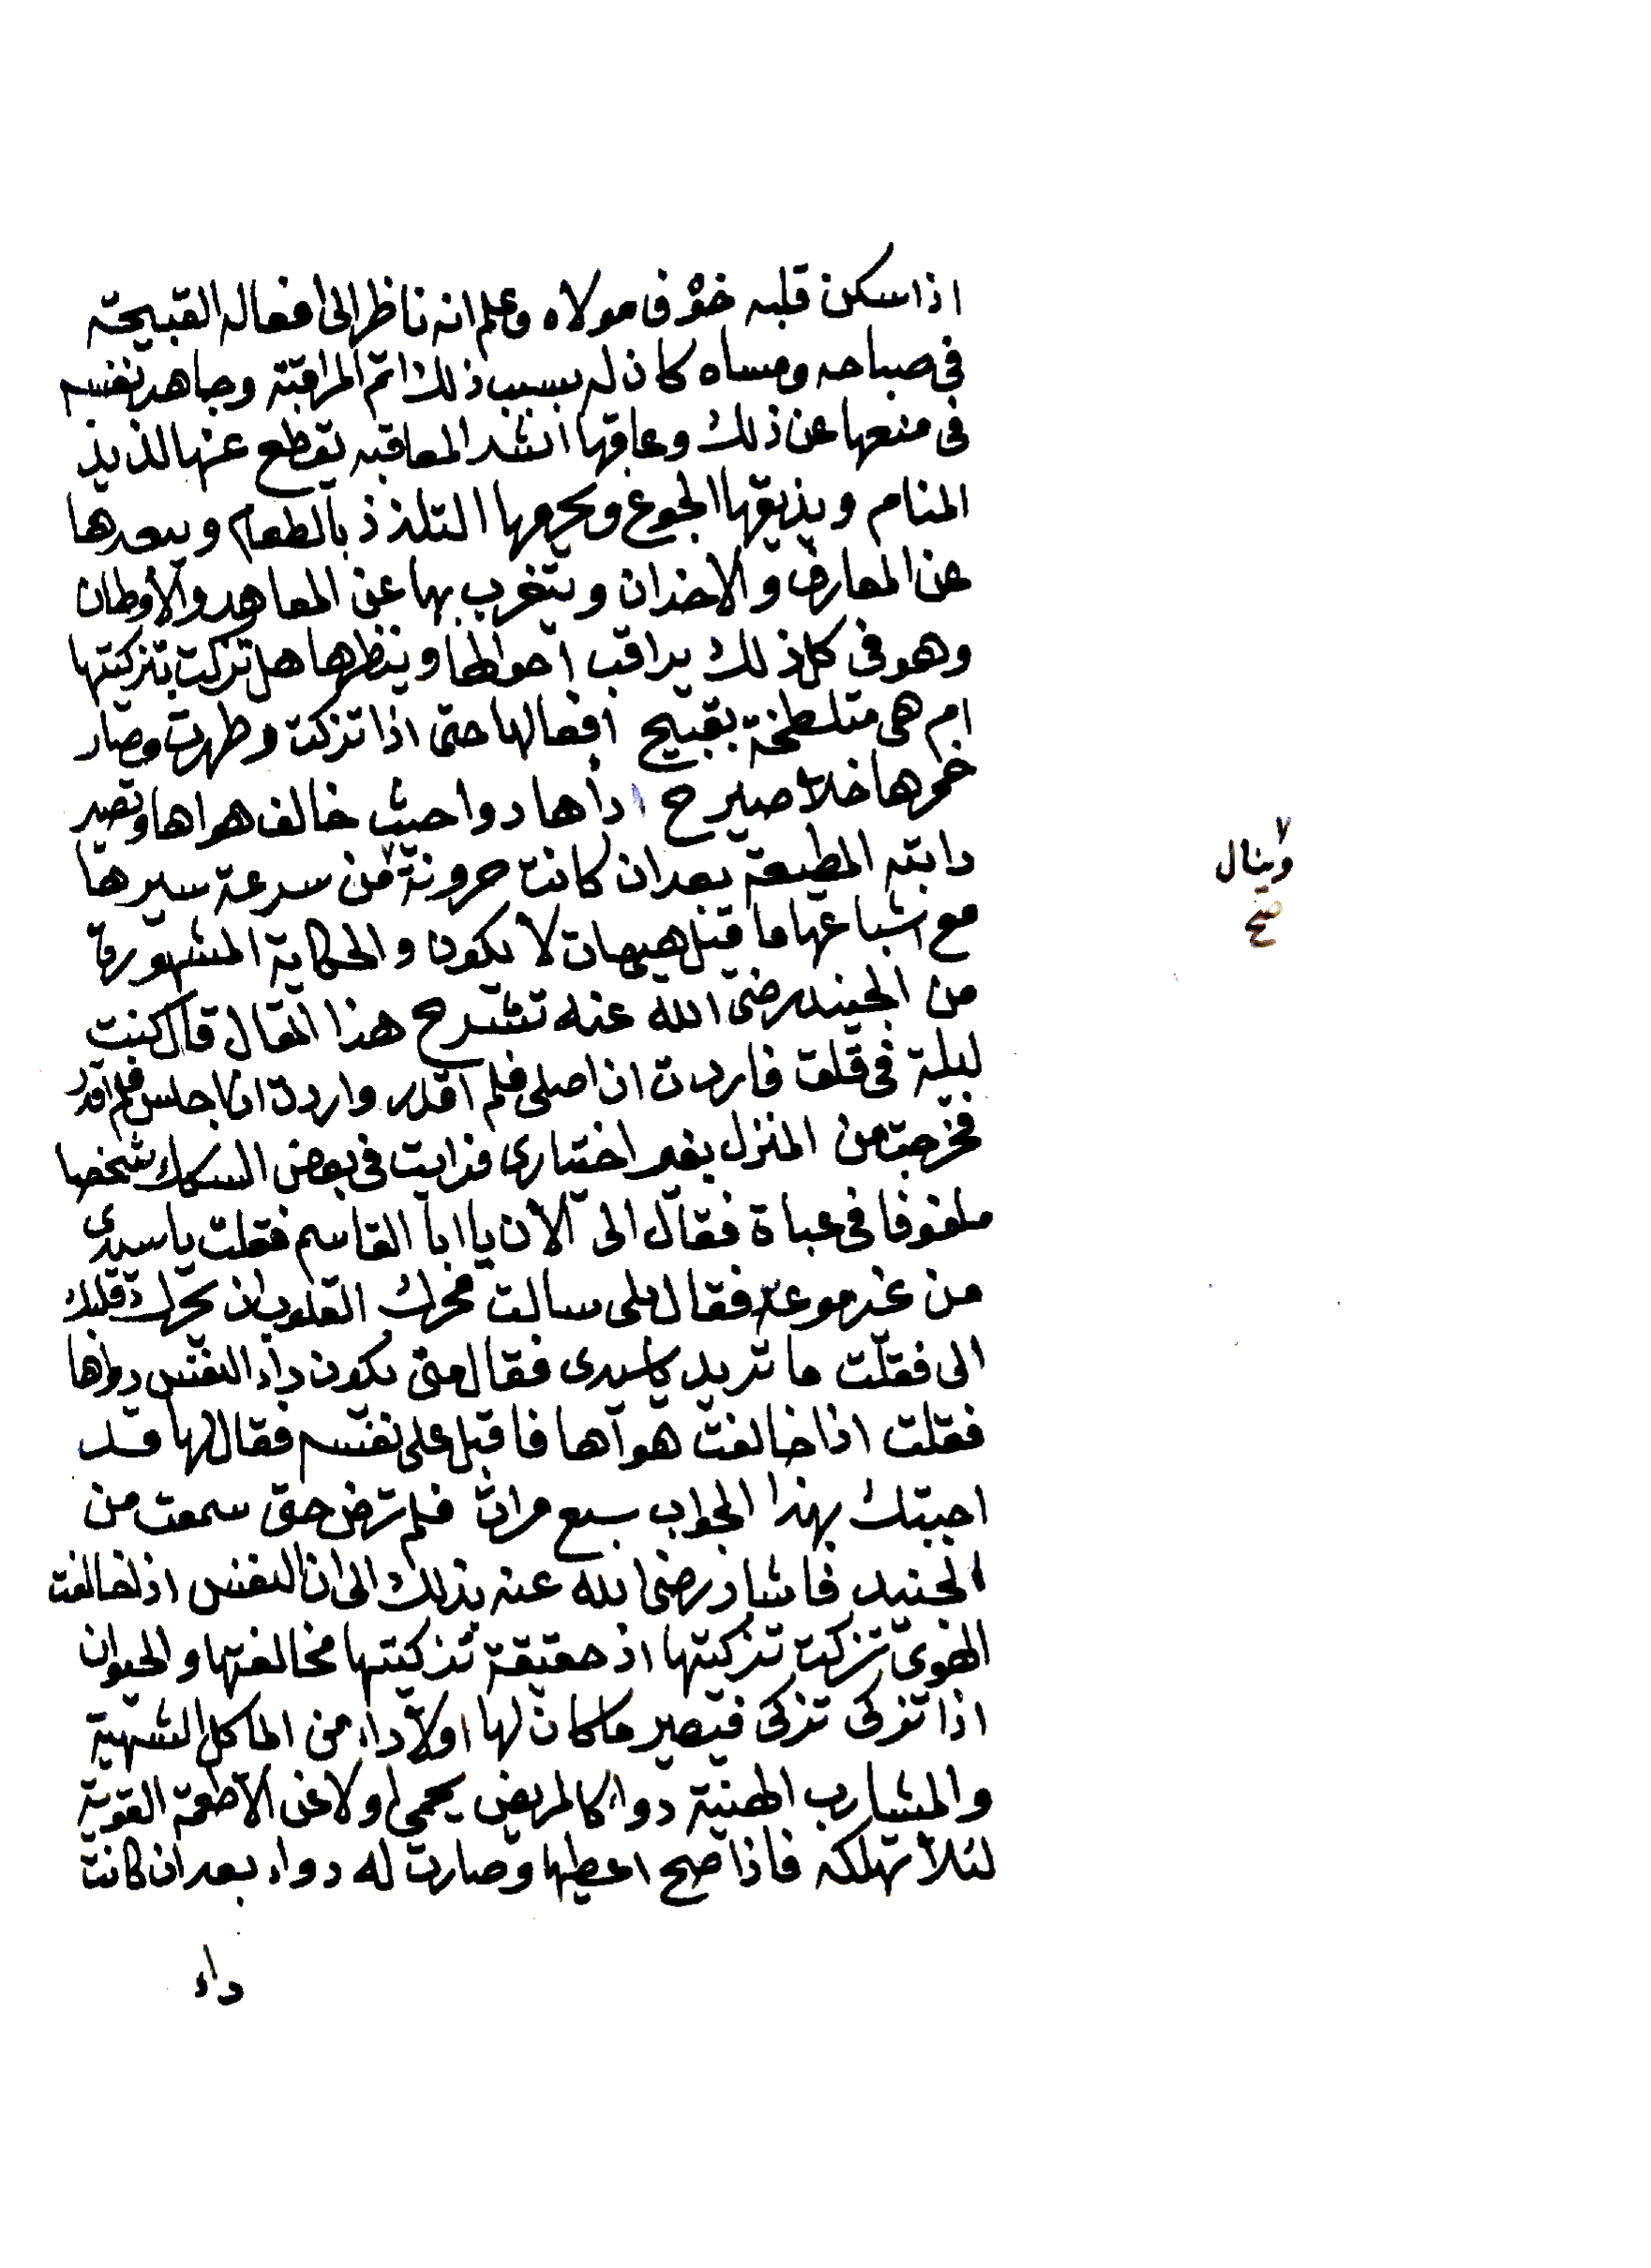 اذا سكن قلبه خوف مولاه وعلم انه ناظر الى افعاله القبيحة
فى صباحه ومساه كان له بسبب ذلك اتم المراقبة وجاهد نفسه
فى منعها عن ذلك وعاقبها اشد المعاقبه يقطع عنها لذيذ
المنام ويذيقها الجوع ويحرمها التلذذ بالطعام ويبعدها
عن المعارف والاخدان ويتغرب بها عن المعاهد والأوطان
وهو فى كل ذلك يراقب احوالها وينظرها هل تزكت بتزكيتها
ام هى متلطخة بقبيح افعالها حتى اذا تزكت وطهرت وصار
خمرها خلا صير ح داها دوا حيث خالف هواها وتصير
دابته المطيعة بعد ان كانت حرونة ٧ من سرعة سيرها
٧ وينال
صح
مع اشباعها ما قبل هيهات لا يكون والحكاية المشهورة
من الجنيد رضى الله عنه تشرح هذا المقال قال كنت
ليلة فى قلق فاردت ان اصلى فلم اقدر واردت ان اجلس فلم اقدر
فخرجت من المنزل بغير اختيارى فرايت فى بعض السكك شخصا
ملفوفا فى عباة فقال الى الان يا ابا القاسم فقلت يا سيدى
من غير موعد فقال بلى سالت محرك القلوب ان يحرك قلبك
الى فقلت ما تريد يا سيدى فقال متى يكون داء النفس دواها
فقلت اذا خالفت هواها فاقبل على نفسه فقال لها قد
اجبتك بهذا الجواب سبع مرات فلم ترض حتى سمعت من
الجنيد فاشار رضى الله عنه بذلك الى ان النفس اذا خالفت
الهوى تزكت تزكيتها اذ حقيقة تزكيتها مخالفتها والحيوان
اذا تزكى تزكى فيصير ما كان لها اولا داء من الماكل الشهية
والمشارب الهنية دواء كالمريض يحمى اولا عن الاطعمة القوية
لئلا تهلكه فاذا صح اعطيها وصارت له دواء بعد ان كانت
داء